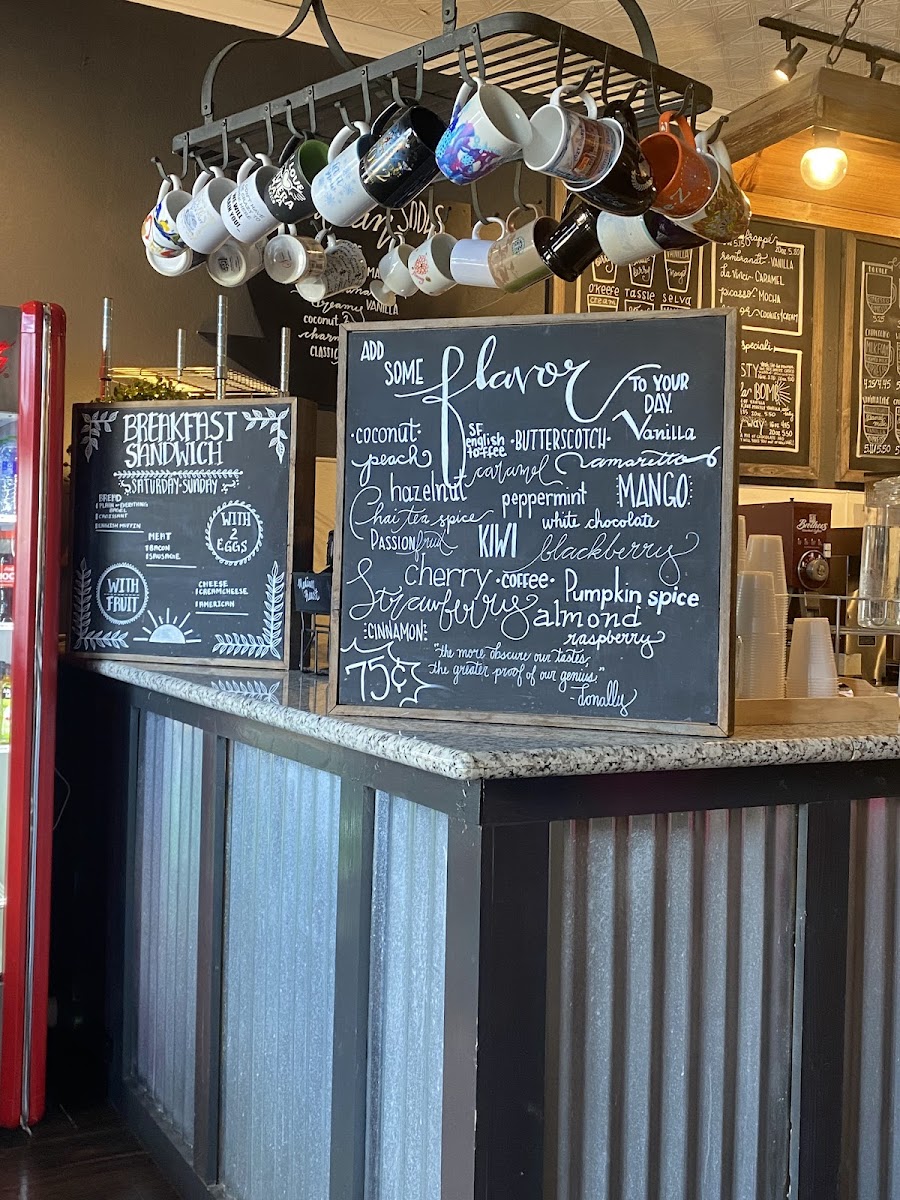 SODAS
VANILLA
coconut
CLASSIC
O'Keefe
TASSIE
SELVA
cream
frappé
20oz 5.80
rembrandt- VANILLA
da Vinci- CARAMEL
picasso- MOCHA
COOKIES & CREAM
BOMB
BREAKFAST
SANDWICH
SATURDAY-SUNDAY
BREAD
PLAIN or EVERYTHING
BAGEL
CROISSANT
ENGLISH MUFFIN
MEAT
BACON
SAUSAGE
WITH
2
EGGS
WITH
FRUIT
CHEESE
CREAMCHEESE
AMERICAN
ADD
SOME flavor TO YOUR
DAY.
·coconut·
SF
english
toffee
·BUTTERSCOTCH·
Vanilla
peach
caramel
amaretto
hazelnut
peppermint
MANGO
Chai tea spice
white chocolate
Passion fruit
KIWI
blackberry
cherry
·coffee·
Pumpkin spice
Strawberry
almond
CINNAMON
raspberry
75¢
"the more obscure our tastes,
the greater proof of our genius."
-donally